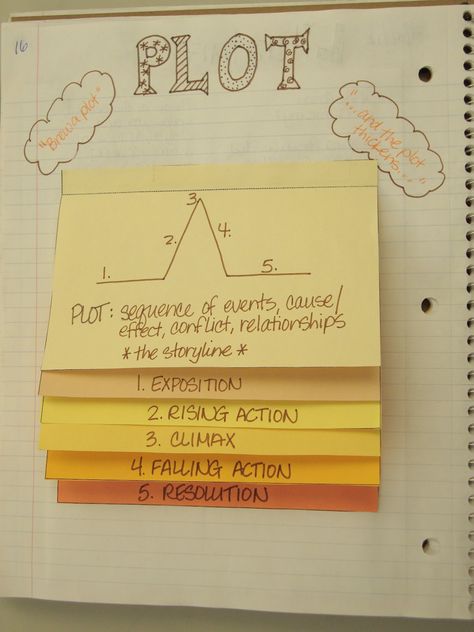 16
PLOT
"Brew a plot"
"...and the plot
thickens..."
3.
2.
4.
1.
5.
PLOT: sequence of events, cause/
effect, conflict, relationships
* the storyline *
1. EXPOSITION
2. RISING ACTION
3. CLIMAX
4. FALLING ACTION
5. RESOLUTION